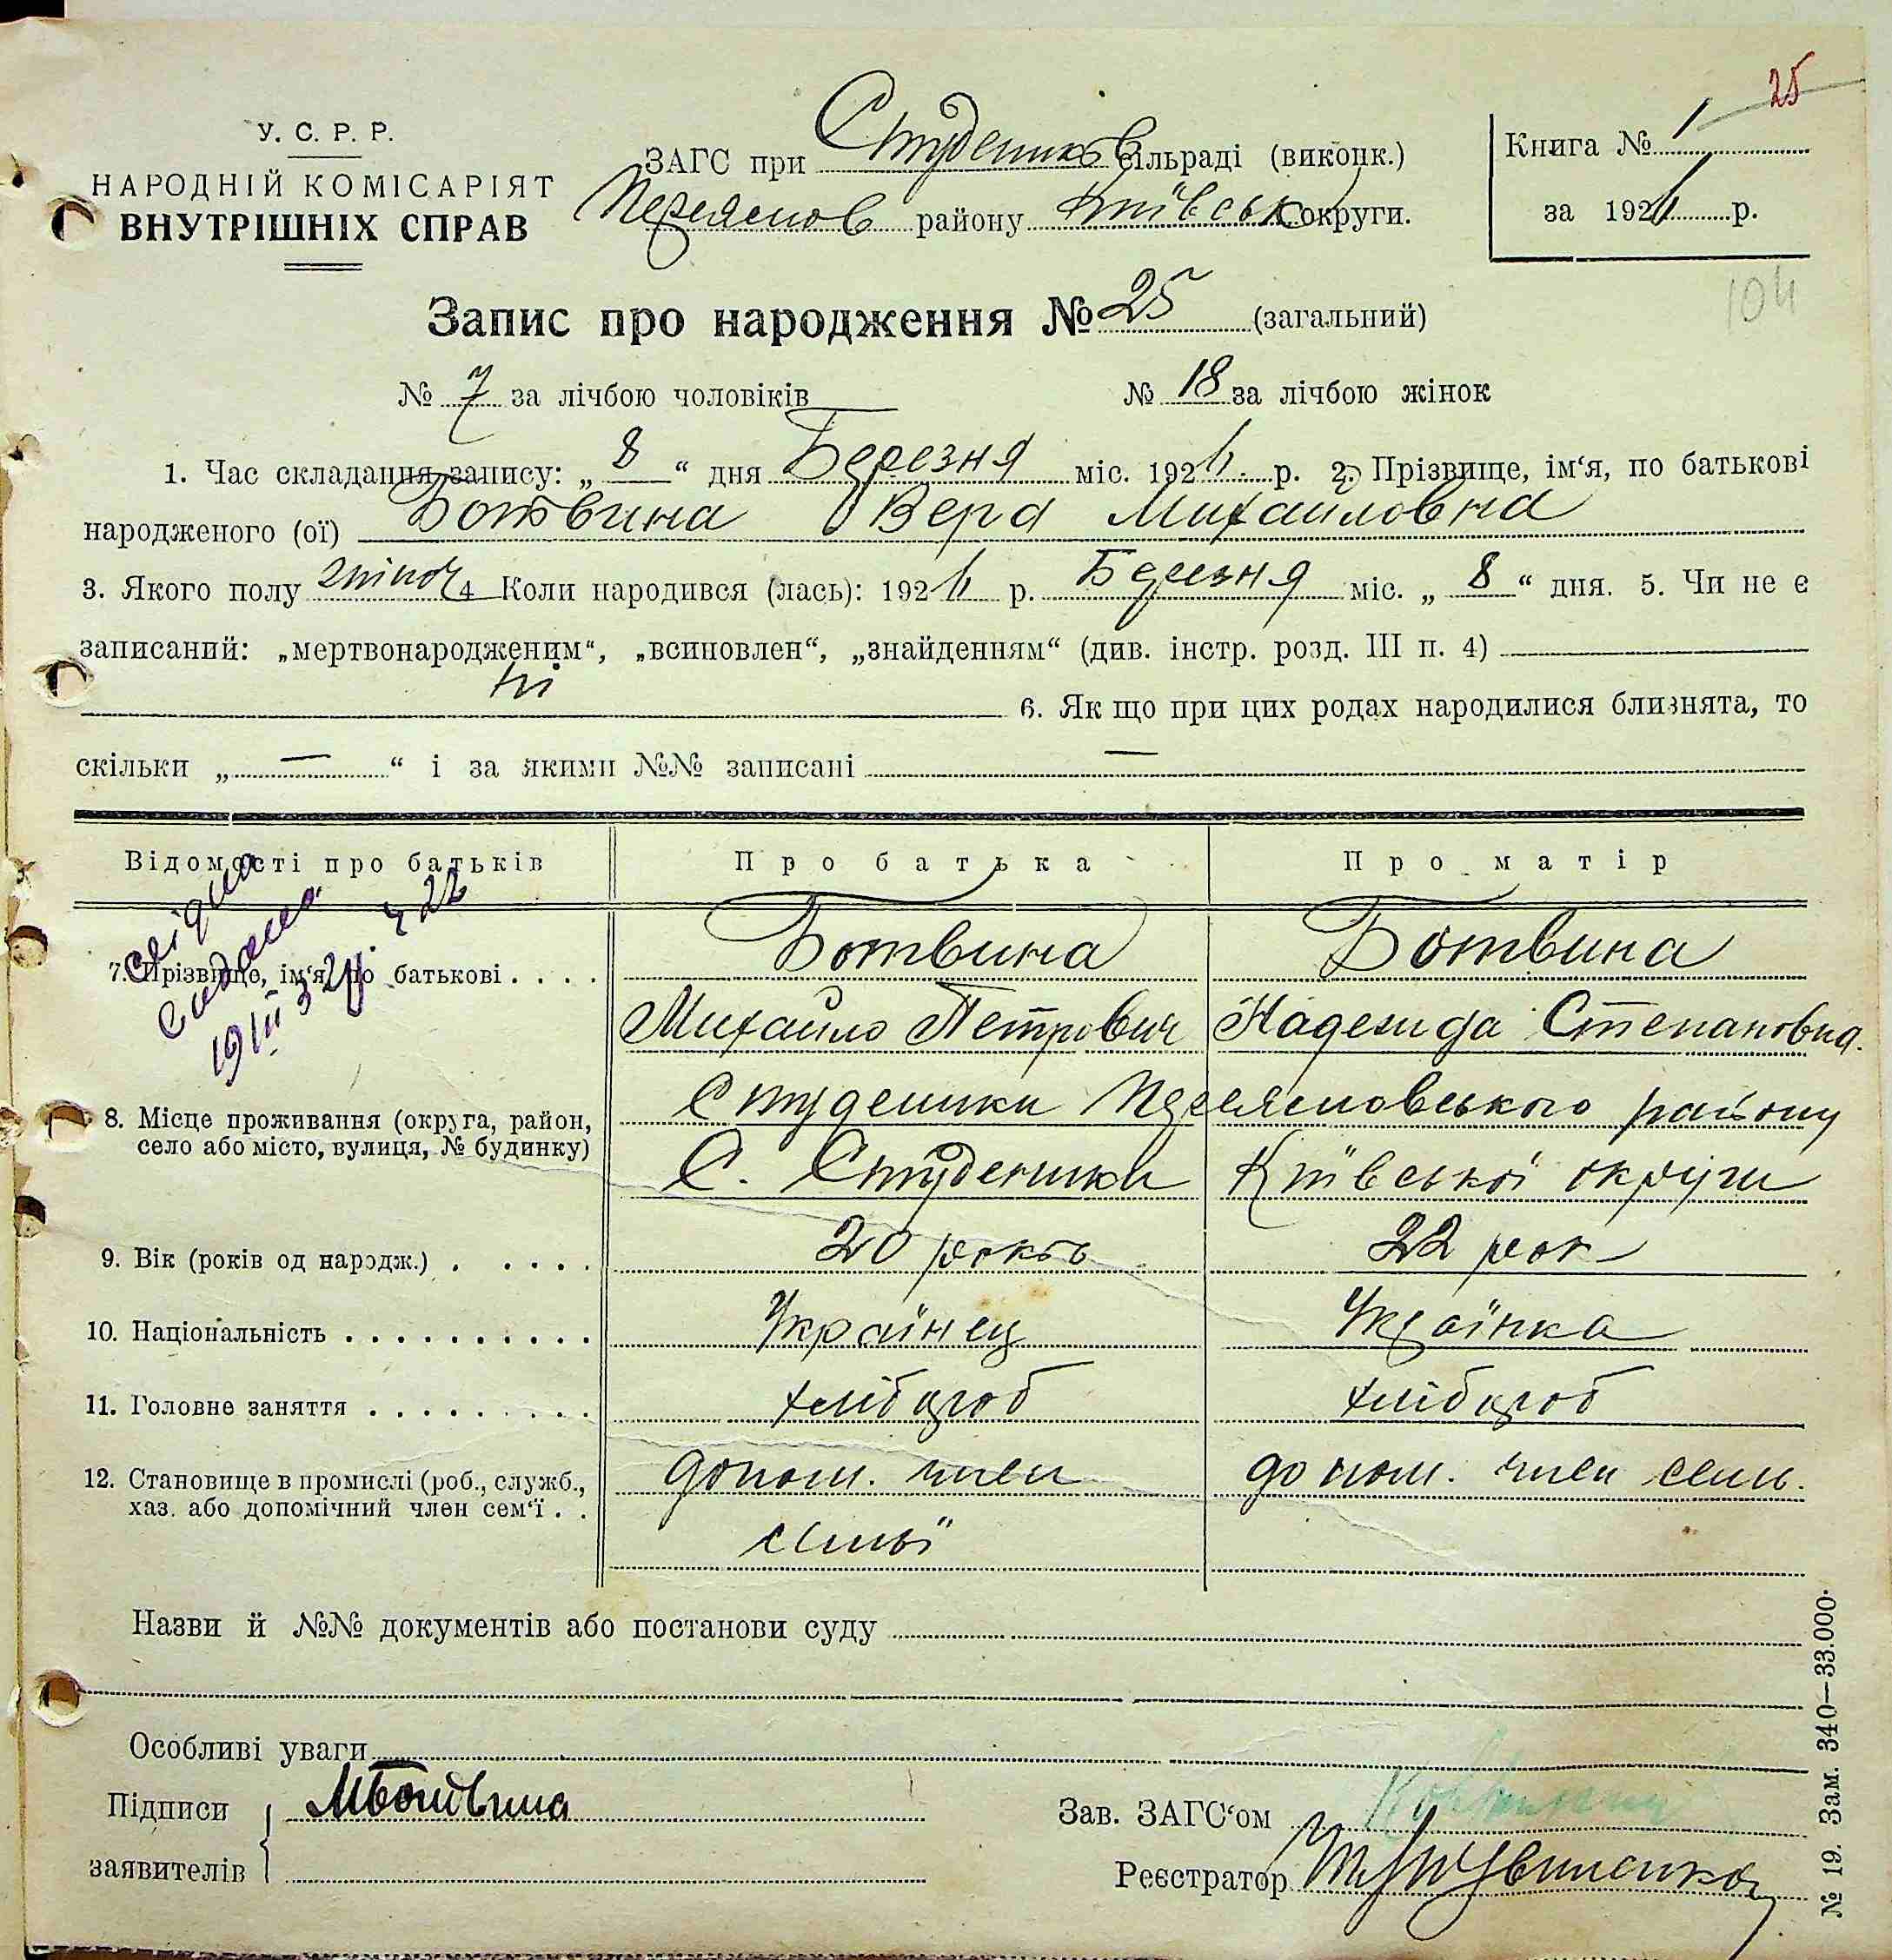 25
У. С. Р. Р.
НАРОДНІЙ КОМІСАРІЯТ
ВНУТРІШНІХ СПРАВ
ЗАГС при Студеников сільраді (виконк.)
Переяслов району Київськ округи.
Книга № 1
за 192 р.
104
Запис про народження № 25 (загальний)
№ 7 за лічбою чоловіків № 18 за лічбою жінок
1. Час складання запису: „ 8 “ дня Березня міс. 192 р. 2. Прізвище, ім‘я, по батькові
народженого (ої) Ботвина Вера Михайловна
3. Якого полу жіноч 4 Коли народився (лась): 192 р. Березня міс. „ 8 “ дня. 5. Чи не є
записаний: „мертвонародженим“, „всиновлен“, „знайденням“ (див. інстр. розд. III п. 4)
ні
6. Як що при цих родах народилися близнята, то
скільки „ — “ і за якими №№ записані —
Відомості про батьків Про батька Про матір
7. Прізвище, ім‘я, по батькові . . . . Ботвина Ботвина
Михайло Петрович Надежда Степановна.
8. Місце проживання (округа, район, Студеники Переясловського району
село або місто, вулиця, № будинку) С. Студеники Київської округи
9. Вік (років од народж.) . . . . . 20 років 22 рок
10. Національність . . . . . . . . . . Українец Українка
11. Головне заняття . . . . . . . . . хлібороб хлібороб
12. Становище в промислі (роб., служб., допом. член допом. член семь.
хаз. або допомічний член сем‘ї . . семьї
Назви й №№ документів або постанови суду
Особливі уваги
Підписи МБотвина
заявителів
Зав. ЗАГС‘ом
Реєстратор
№ 19. Зам. 340—33.000.